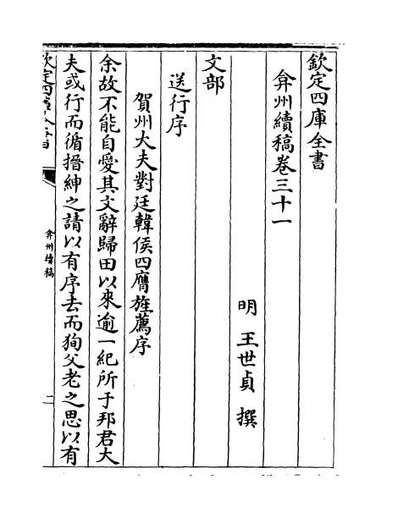 欽定四庫全書
弇州續稿卷三十一
明 王世貞 撰
文部
送行序
賀州大夫對廷韓侯四膺旌薦序
余故不能自愛其文辭歸田以來逾一紀所于邦君大
夫或行而循搢紳之請以有序去而狥父老之思以有
弇州續稿